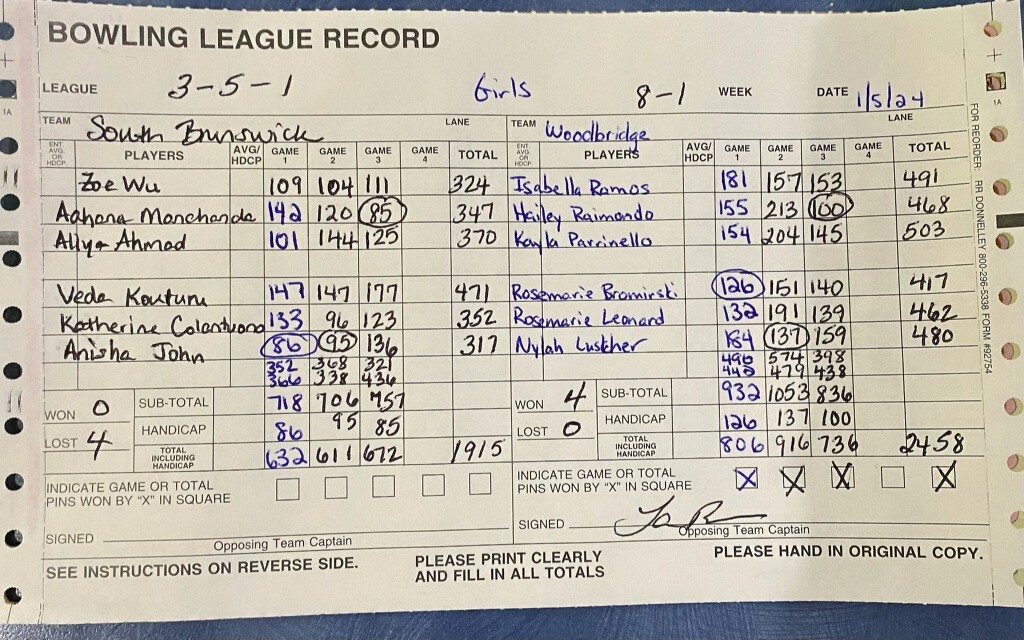 BOWLING LEAGUE RECORD
LEAGUE 3-5-1 Girls 8-1 WEEK DATE 1/5/24
TEAM South Brunswick LANE TEAM Woodbridge LANE
ENT. AVG. OR HDCP. PLAYERS AVG/HDCP GAME 1 GAME 2 GAME 3 GAME 4 TOTAL ENT. AVG. OR HDCP. PLAYERS AVG/HDCP GAME 1 GAME 2 GAME 3 GAME 4 TOTAL
Zoe Wu 109 104 111 324 Isabella Ramos 181 157 153 491
Aahana Manchanda 142 120 85 347 Hailey Raimondo 155 213 100 468
Aliya Ahmad 101 144 125 370 Kayla Parrinello 154 204 145 503
Veda Kouturu 147 147 177 471 Rosemarie Bromirski 126 151 140 417
Katherine 133 96 123 352 Rosemarie Leonard 132 191 139 462
Anisha John 86 95 136 317 Nylah Luskher 184 137 159 480
352 368 321 490 574 398
366 338 436 442 479 438
WON 0 SUB-TOTAL 718 706 757 WON 4 SUB-TOTAL 932 1053 836
LOST 4 HANDICAP 86 95 85 LOST 0 HANDICAP 126 137 100
TOTAL INCLUDING HANDICAP 632 611 672 1915 TOTAL INCLUDING HANDICAP 806 916 736 2458
INDICATE GAME OR TOTAL PINS WON BY "X" IN SQUARE INDICATE GAME OR TOTAL PINS WON BY "X" IN SQUARE X X X X
SIGNED SIGNED
Opposing Team Captain Opposing Team Captain
SEE INSTRUCTIONS ON REVERSE SIDE. PLEASE PRINT CLEARLY AND FILL IN ALL TOTALS PLEASE HAND IN ORIGINAL COPY.
FOR REORDER: RR DONNELLEY 800-296-5338 FORM #92754
1A
1A